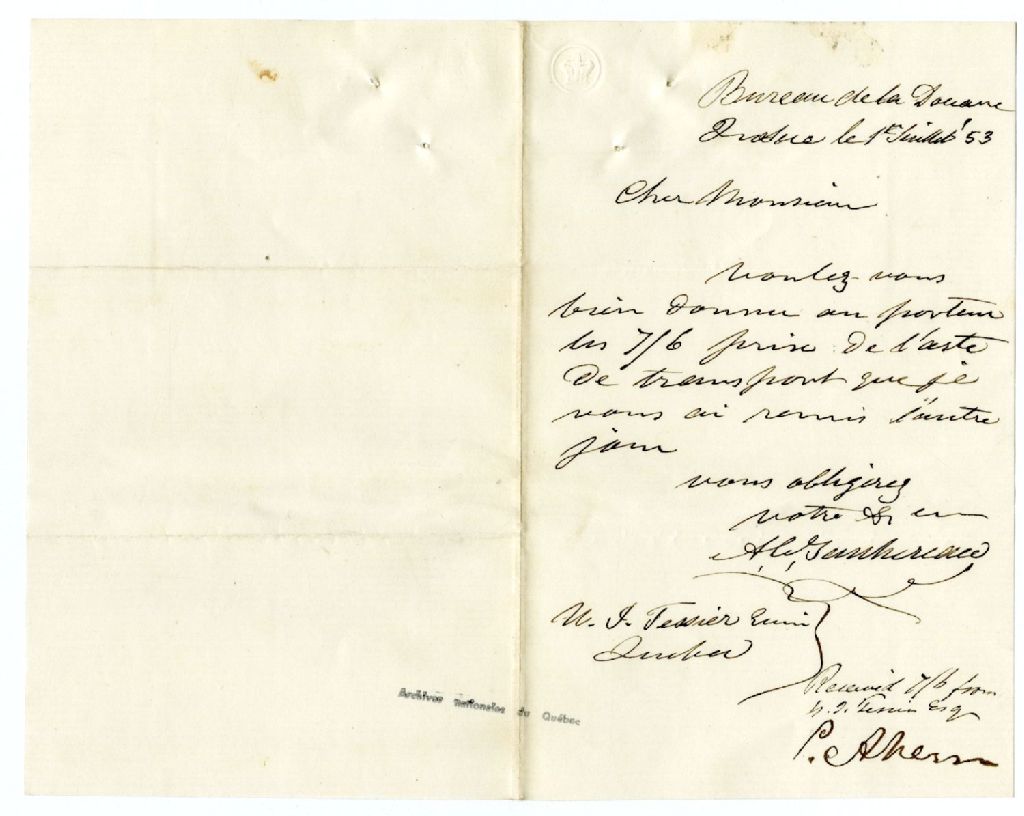 Bureau de la Douane
Quebec le 1er Juillet '53
Cher Monsieur
Voulez vous
bien donner au porteur
les 7/6 prix de l'acte
de transport que je
vous ai remis l'autre
jour
vous obligerez
votre
U. J. Tessier
Quebec
Received 7/6 from
U. J. Tessier Esq
P. Ahern
Archives nationales du Québec